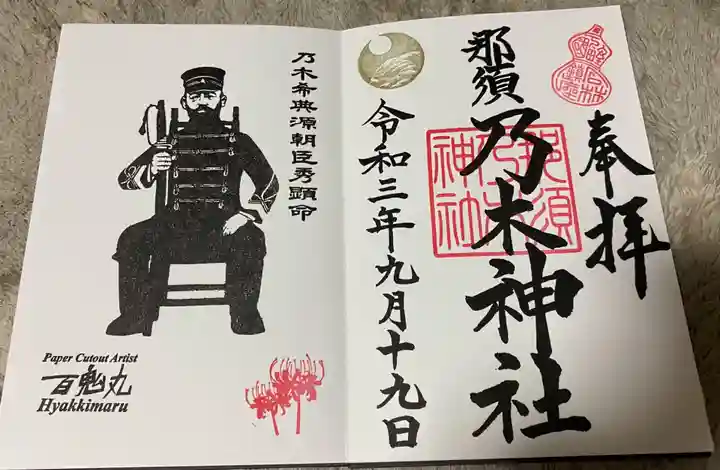 奉拝
那須乃木神社
那須乃木神社
令和三年九月十九日
乃木希典源朝臣秀顕命
Paper Cutout Artist
百鬼丸
Hyakkimaru